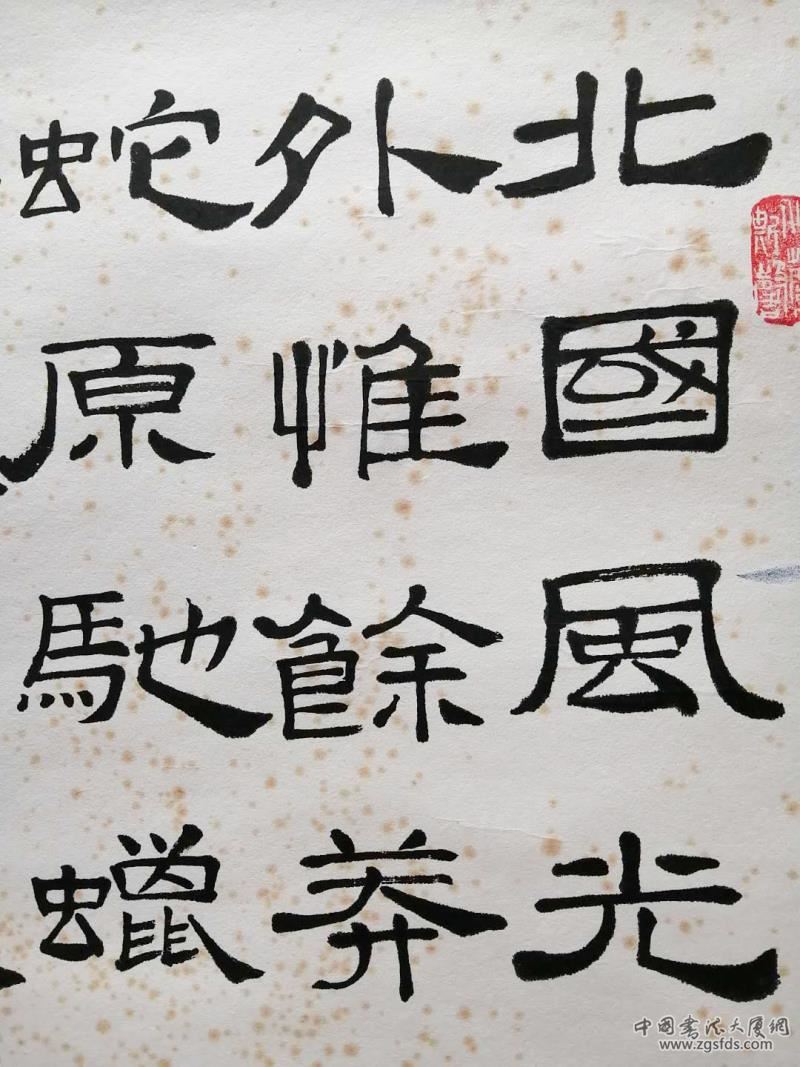 北國風光
外惟餘莽
蛇原馳蠟
中国書法大厦網
www.zgsfds.com